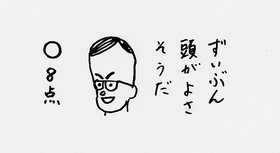 ずいぶん
頭がよさ
そうだ
○8点